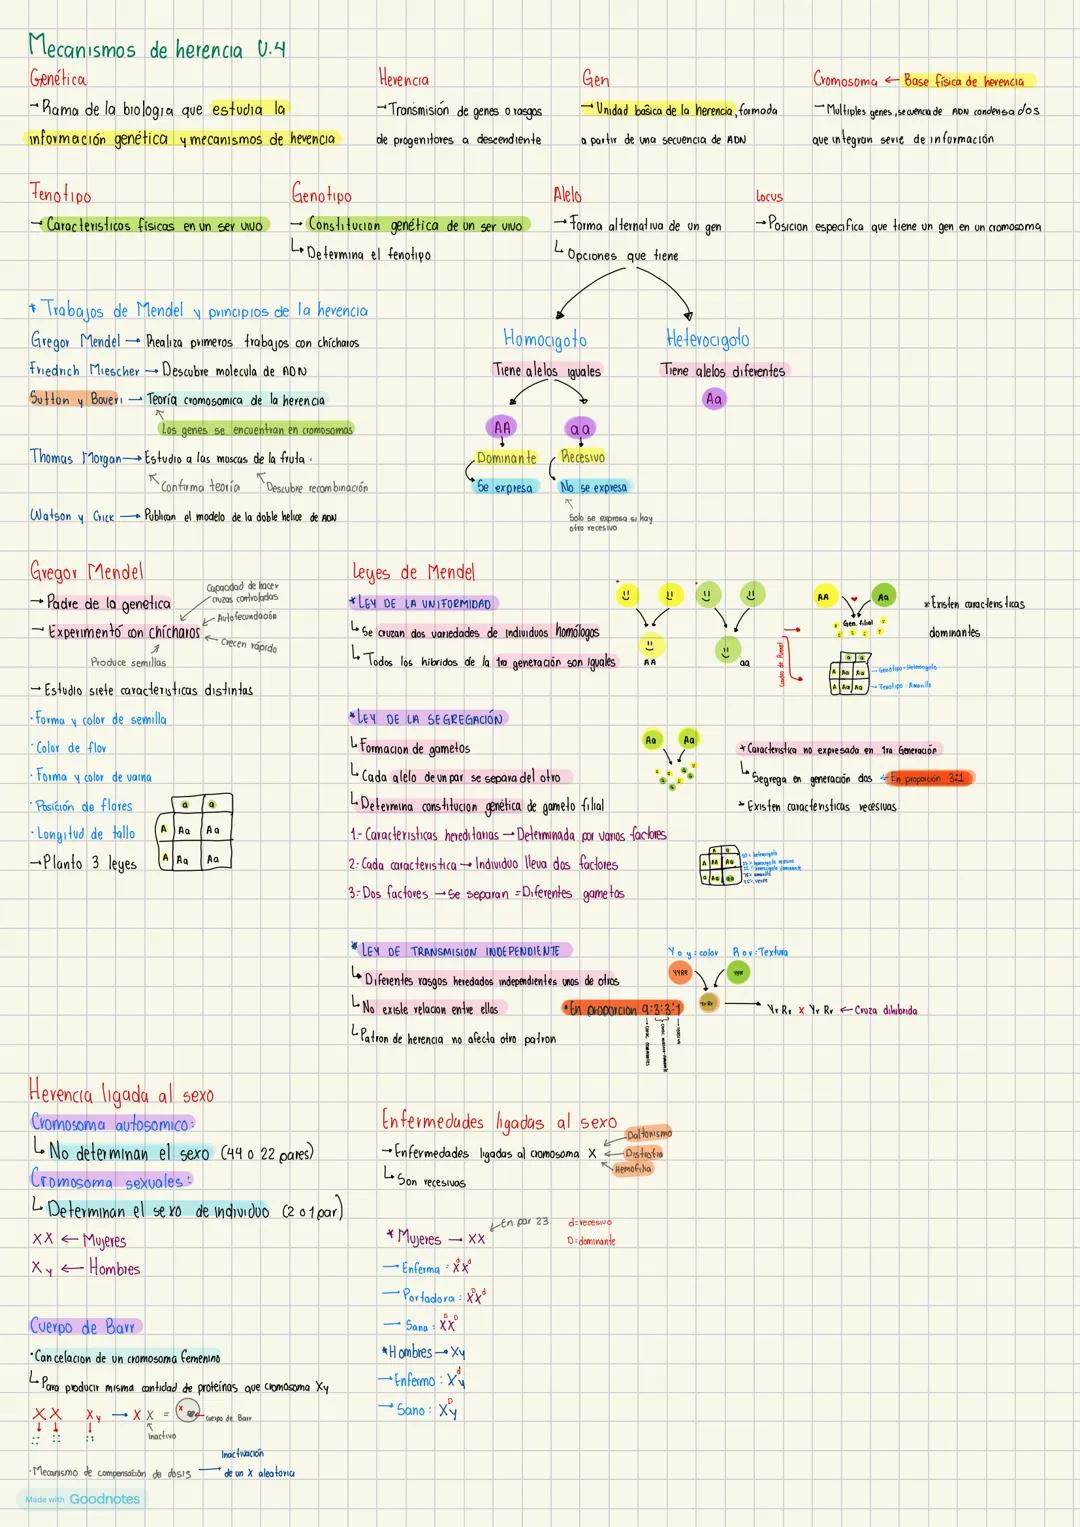 Mecanismos de herencia U.4
Genética
→ Rama de la biologia que estudia la
información genética y mecanismos de herencia
Herencia
→ Transmisión de genes o rasgos
de progenitores a descendiente
Gen
→ Unidad basica de la herencia, formada
a partir de una secuencia de ADN
Cromosoma ← Base física de herencia
→ Multiples genes, secuencia de ADN condensados
que integran serie de información
Fenotipo
→ Caracteristicas físicas en un ser vivo
Genotipo
→ Constitucion genética de un ser vivo
↳ Determina el fenotipo
Alelo
→ Forma alternativa de un gen
↳ Opciones que tiene
Locus
→ Posicion especifica que tiene un gen en un cromosoma
Homocigoto
Tiene alelos iguales
AA
aa
Dominante
Recesivo
Se expresa
No se expresa
Solo se expresa si hay
otro recesivo
Heterocigoto
Tiene alelos diferentes
Aa
* Trabajos de Mendel y principios de la herencia
Gregor Mendel → Realiza primeros trabajos con chícharos
Friedrich Miescher → Descubre molecula de ADN
Sutton y Boveri → Teoría cromosomica de la herencia
Los genes se encuentran en cromosomas
Thomas Morgan → Estudio a las moscas de la fruta.
Confirma teoría
Descubre recombinación
Watson y Crick → Publican el modelo de la doble helice de ADN
Gregor Mendel
→ Padre de la genetica
→ Experimentó con chícharos
Capacidad de hacer
cruzas controladas
Autofecundación
Crecen rápido
Produce semillas
→ Estudio siete caracteristicas distintas
· Forma y color de semilla
· Color de flor
· Forma y color de vaina
· Posición de flores
· Longitud de tallo
→ Planto 3 leyes
a a
A Aa Aa
A Aa Aa
Leyes de Mendel
* LEY DE LA UNIFORMIDAD
↳ Se cruzan dos variedades de individuos homólogos
↳ Todos los hibridos de la 1ra generación son iguales
AA
aa
AA
Aa
Gen. filial
Cuadro de Punnet
a a
A Aa Aa
A Aa Aa
Genotipo: Heterocigoto
Fenotipo: Amarillo
* Existen caracteristicas
dominantes
* LEY DE LA SEGREGACIÓN
↳ Formacion de gametos
↳ Cada alelo de un par se separa del otro
↳ Determina constitucion genética de gameto filial
1.- Caracteristicas hereditarias → Determinada por varios factores
2.- Cada caracteristica → Individuo lleva dos factores
3.- Dos factores → Se separan = Diferentes gametos
Aa
Aa
* Caracteristica no expresada en 1ra Generación
↳ Segrega en generación dos ← En proporción 3:1
* Existen características recesivas
A a
A AA Aa
a Aa aa
* LEY DE TRANSMISION INDEPENDIENTE
↳ Diferentes rasgos heredados independientes unos de otros
↳ No existe relacion entre ellos
↳ Patron de herencia no afecta otro patron
* En proporcion 9:3:3:1
Y o y: color
R o r: Textura
YYRR
yyrr
YyRr
Yy Rr x Yy Rr ← Cruza dihibrida
Herencia ligada al sexo
Cromosoma autosomico:
↳ No determinan el sexo (44 o 22 pares)
Cromosoma sexuales:
↳ Determinan el sexo de individuo (2 o 1 par)
XX ← Mujeres
Xy ← Hombres
Cuerpo de Barr
· Cancelacion de un cromosoma femenino
↳ Para producir misma cantidad de proteínas que cromosoma Xy
XX
Xy → XX =
x
Cuerpo de Barr
Inactivo
· Mecanismo de compensación de dosis →
Inactivación
de un X aleatoria
Enfermedades ligadas al sexo
→ Enfermedades ligadas al cromosoma X
Daltonismo
Distrofia
Hemofilia
↳ Son recesivas
* Mujeres → XX
En par 23
d=recesivo
D=dominante
→ Enferma: XᵈXᵈ
→ Portadora: XᴰXᵈ
→ Sana: XᴰXᴰ
* Hombres → Xy
→ Enfermo: Xᵈy
→ Sano: Xᴰy
Made with Goodnotes